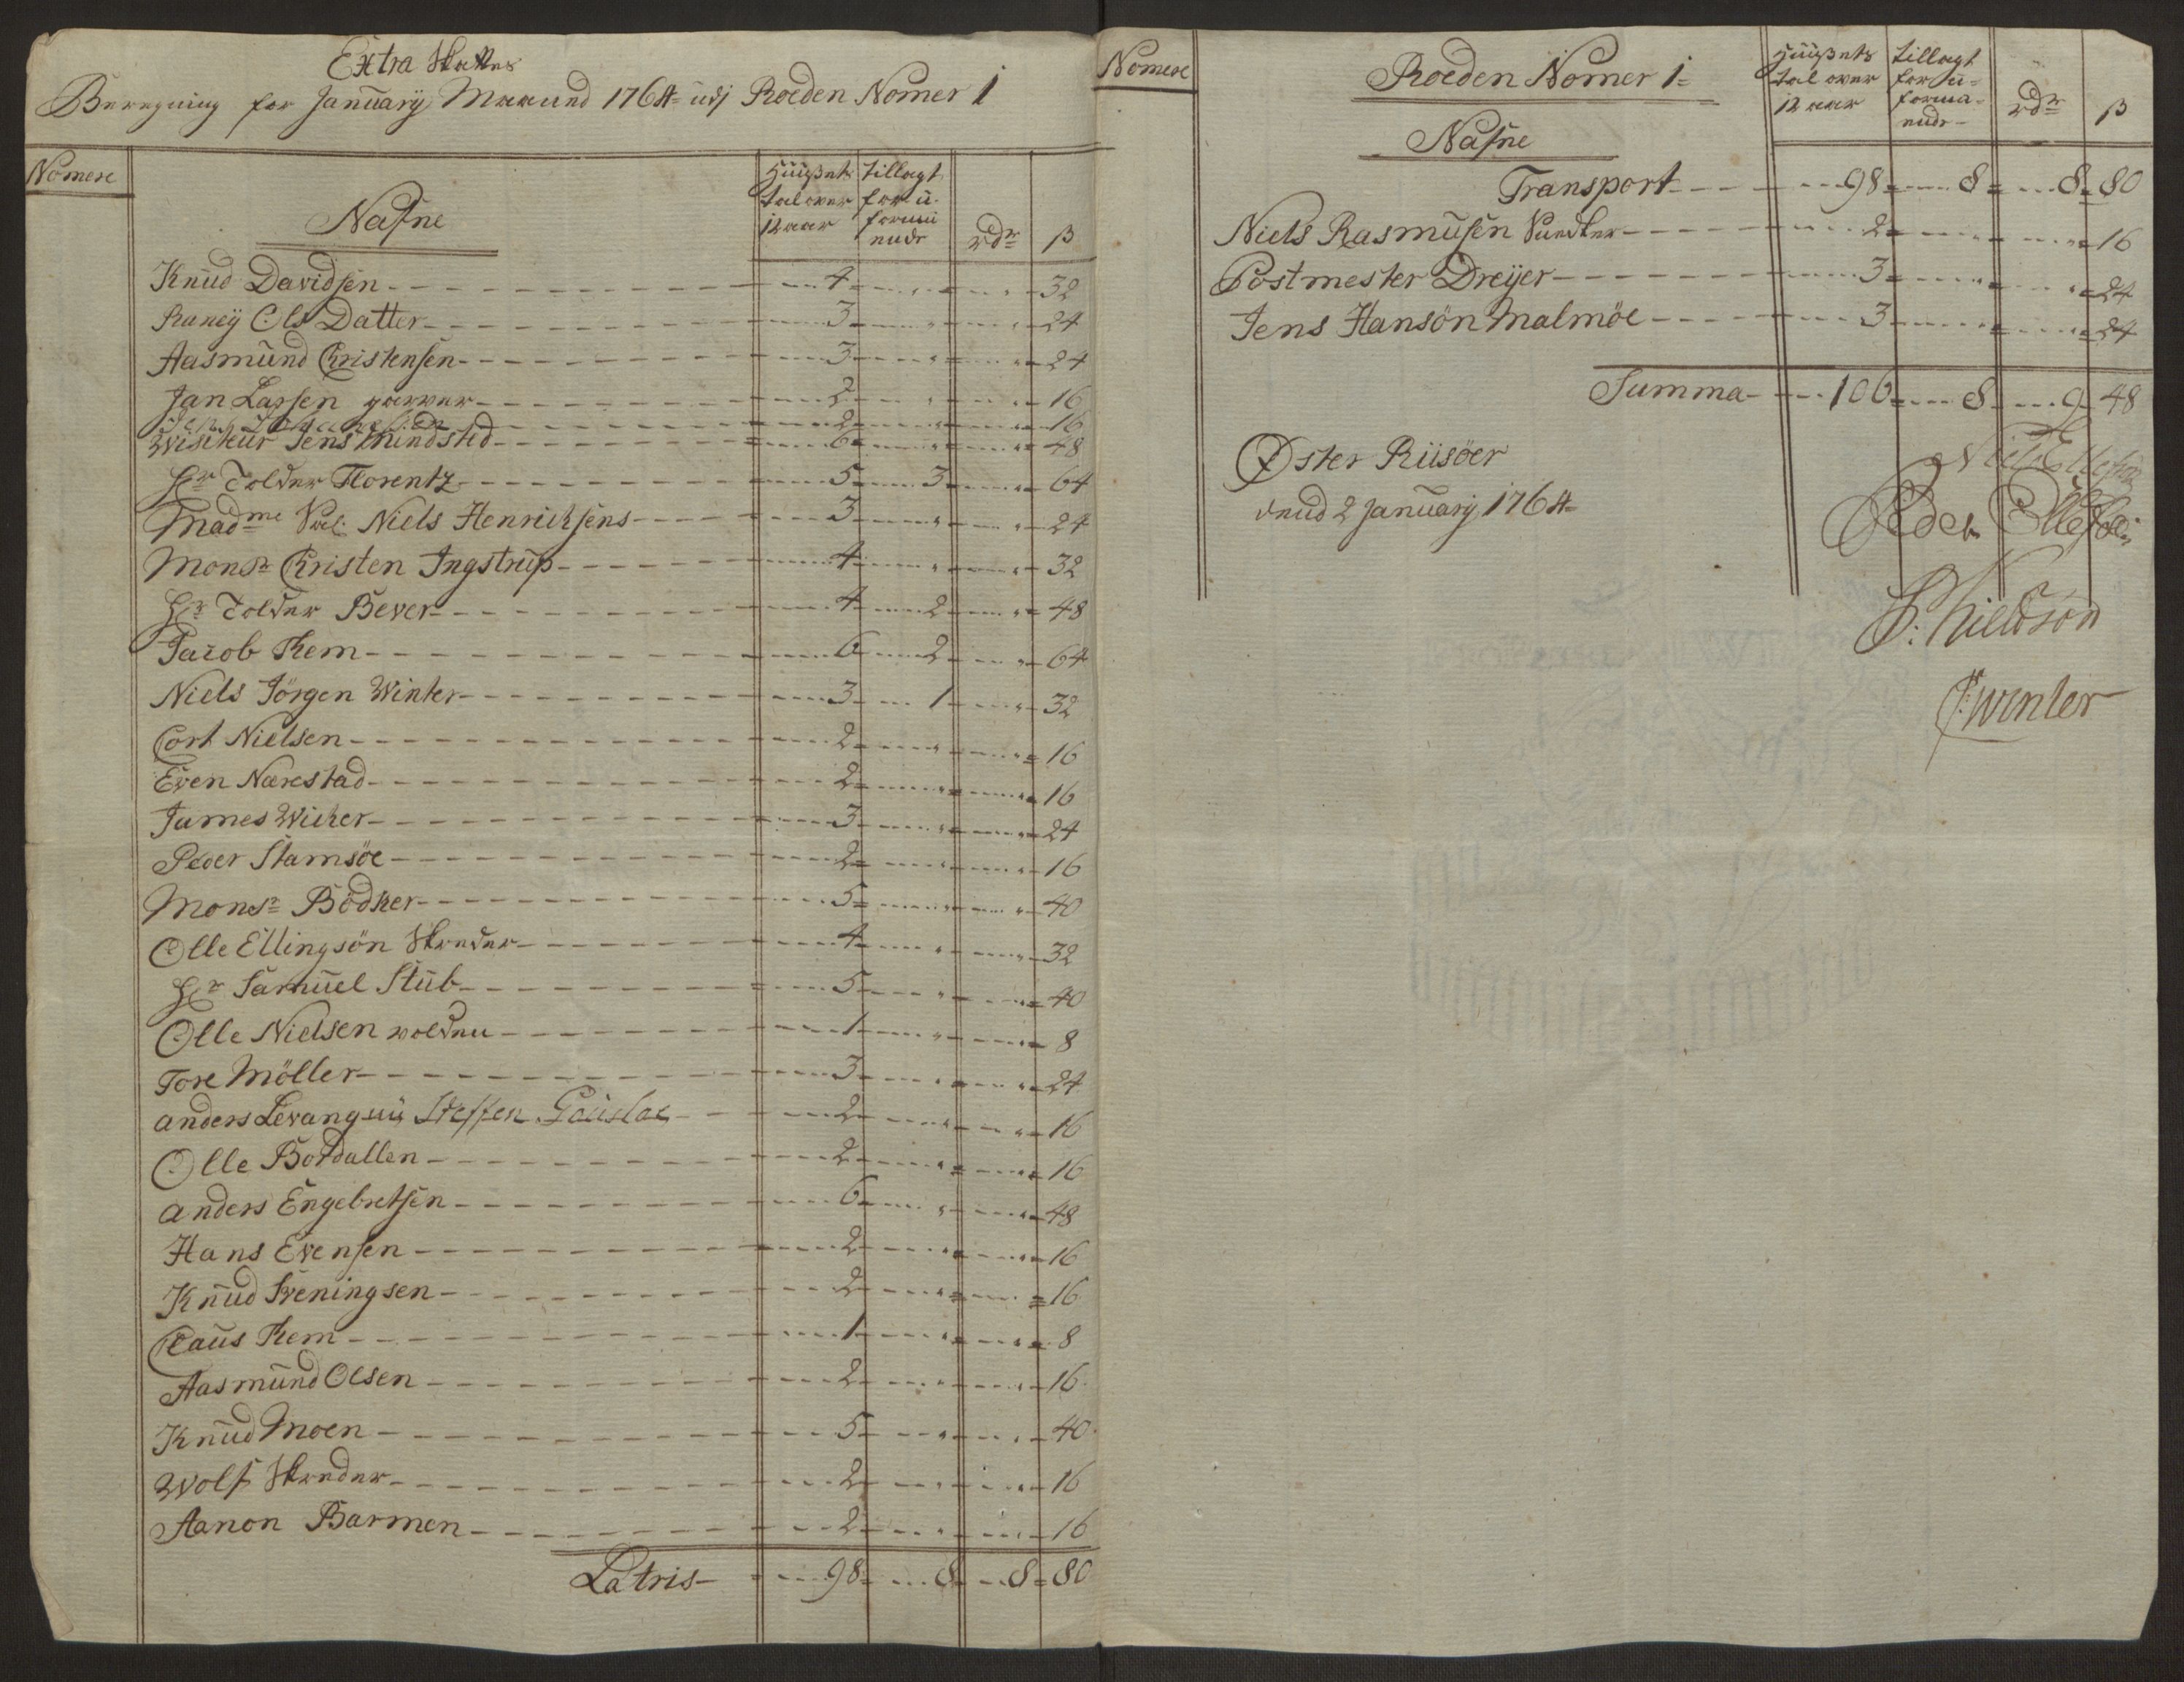 Extra Skattes
Beregning for Januarij Maaned 1764 udj Roeden Nomer 1
Nomere
Nafne
Huusets tal over 12 aar
tillagt for u-formu ende
rdr
β
Knud Davidsen 4 " " 32
Raneÿ Ols Datter 3 " " 24
Aasmund Christensen 3 " " 24
Jan Lassen garver 2 " " 16
2 " " 16
Visiteur Jens Mindsted 6 " " 48
Hr Tolder Florentz 5 3 " 64
Madme Sal: Niels Henrichsens 3 " " 24
Monsr Christen Ingstrup 4 " " 32
Hr Tolder Bever 4 2 " 48
Jacob Kem 6 2 " 64
Niels Jörgen Winter 3 1 " 32
Cort Nielsen 2 " " 16
Even Narestad 2 " " 16
James Wicher 3 " " 24
Peder Stamsöe 2 " " 16
Monsr Bödker 5 " " 40
Olle Ellingsön Skreder 4 " " 32
Hr Samuel Stub 5 " " 40
Olle Nielsen Volden 1 " " 8
Tore Möller 3 " " 24
Anders Levang nu Steffen Gouslae 2 " " 16
Olle Bordallen 2 " " 16
Anders Engebretsen 6 " " 48
Hans Evensen 2 " " 16
Knud Sveningsen 2 " " 16
Claus Kem 1 " " 8
Aasmund Olsen 2 " " 16
Knud Moen 5 " " 40
Wolf Skreder 2 " " 16
Aanon Barmen 2 " " 16
Latris 98 8 8 80
Nomere
Roeden Nomer 1
Nafne
Huusets tal over 12 aar
tillagt for u-forma-ende
rdr
β
Transport 98 8 8 80
Niels Rasmusen 2 " " 16
Postmester Dreÿer 3 " " 24
Jens Hansön Malmöe 3 " " 24
Summa 106 8 9 48
Øster Riisöer
dend 2 Januarij 1764
Niels Ellefsen
Peder Ellefsen
P: Nielsön
C: Winter